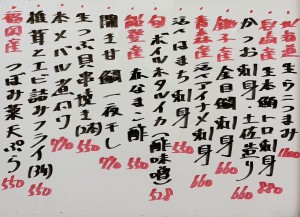 北海道産 生ウニつまみ 1100
和歌山産 生本鮪トロ刺身 880
かつお刺身 土佐造り 660
銚子産 金目鯛刺身 660
青森産 活〆アイナメ刺身 660
活〆はまち刺身 550
旬 ボイルホタルイカ(酢味噌) 528
能登産 赤なまこ酢 550
開き甘鯛一夜干し
生つぶ貝串焼き(2本)
本メバル煮付け 770
椎茸とエビ詰めフライ(3ヶ) 550
福岡産 つぼみ菜天ぷら 550